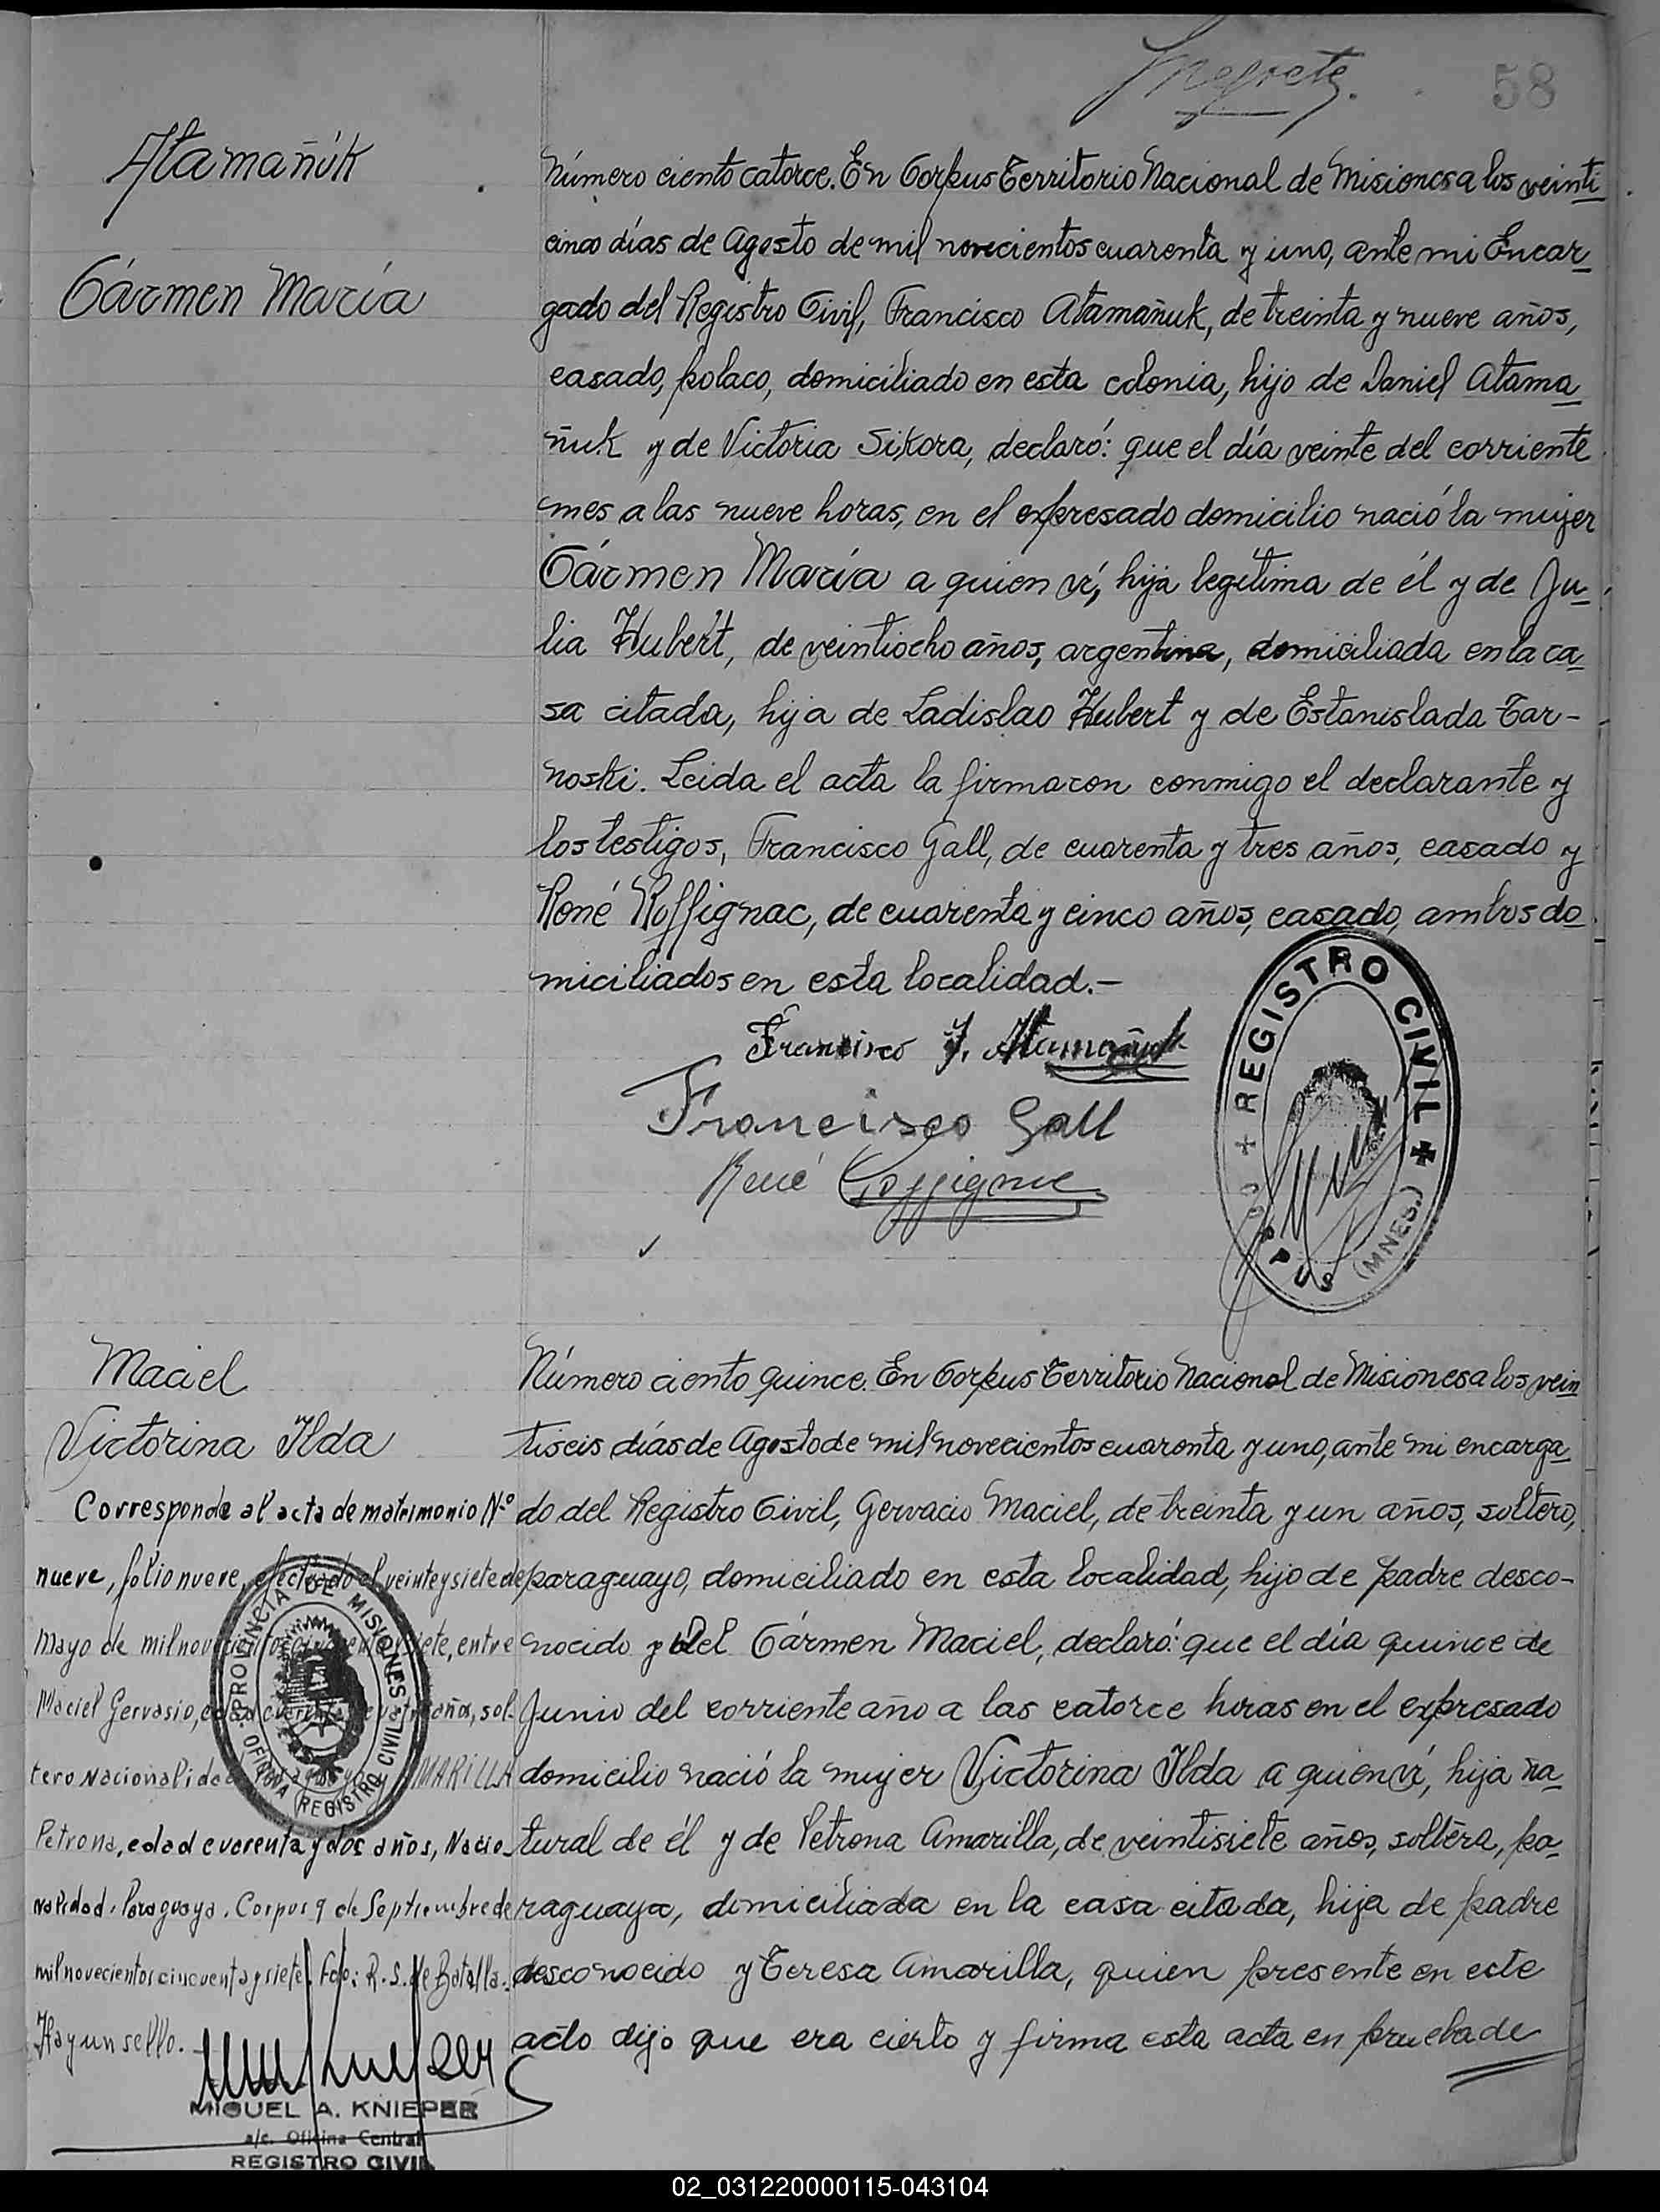 58
Atamañúk
Cármen María
Número ciento catorce. En Corpus Territorio Nacional de Misiones a los veinti
cinco días de Agosto de mil novecientos cuarenta y uno, ante mi Encar
gado del Registro Civil, Francisco Atamañuk, de treinta y nueve años,
casado, polaco, domiciliado en esta colonia, hijo de Daniel Atama
ñuk y de Victoria Sikora, declaró: que el día veinte del corriente
mes a las nueve horas, en el expresado domicilio nació la mujer
Cármen María a quien ví, hija legítima de él y de Ju
lia Hubert, de veintiocho años, argentina, domiciliada en la ca
sa citada, hija de Ladislao Hubert y de Estanislada Tar-
noski. Leida el acta la firmaron conmigo el declarante y
los testigos, Francisco Gall, de cuarenta y tres años, casado y
René Roffignac, de cuarenta y cinco años, casado, ambos do
miciliados en esta localidad.-
Francisco J. Atamañuk
Francisco Gall
René Roffignac
REGISTRO CIVIL
CORPUS (MNES.)
Maciel
Victorina Ilda
Corresponde al acta de matrimonio Nº
nueve, folio nueve, efectuado el veinte y siete de
Mayo de mil novecientos cincuenta y siete, entre
Maciel Gervasio, edad cuarenta y cuatro años, sol-
tero Nacionalidad paraguayo y AMARILLA
Petrona, edad cuarenta y dos años, Nacio-
nalidad, Paraguaya. Corpus 9 de Septiembre de
mil novecientos cincuenta y siete. Fdo: R. S. de Batalla.-
Hay un sello.-
PROVINCIA DE MISIONES
OFICINA REGISTRO CIVIL
MIGUEL A. KNIEPER
a/c. Oficina Central
REGISTRO CIVIL
Número ciento quince. En Corpus Territorio Nacional de Misiones a los vein
tiseis días de Agosto de mil novecientos cuarenta y uno, ante mi encarga
do del Registro Civil, Gervacio Maciel, de treinta y un años, soltero,
paraguayo, domiciliado en esta localidad, hijo de padre desco-
nocido y del Cármen Maciel, declaró: que el día quince de
Junio del corriente año a las catorce horas en el expresado
domicilio nació la mujer Victorina Ilda a quien ví, hija na
tural de él y de Petrona Amarilla, de veintisiete años, soltera, pa
raguaya, domiciliada en la casa citada, hija de padre
desconocido y Teresa Amarilla, quien presente en este
acto dijo que era cierto y firma esta acta en prueba de
02_031220000115-043104